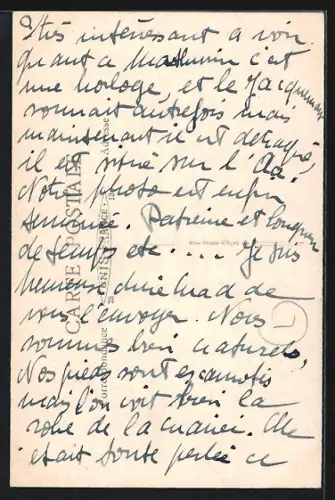 très intéressant a voir
quant a Mathurin c'est
une horloge, et le Jacquemart
sonnait autrefois mais
maintenant il est détraqué
il est situé sur l'
Notre photo est enfin
terminée. Patience et longueur
de temps etc.... Je suis
heureuse chère Mad de
vous l'envoyer. Nous
sommes bien naturels,
Nos pieds sont escamotés
mais l'on voit bien la
robe de la mariée. Elle
était toute perlée ce
CARTE POSTALE
Correspondance
Adresse